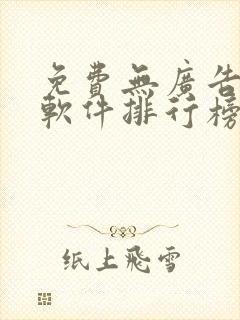 免費無廣告
軟件排行榜
纸上飛雪